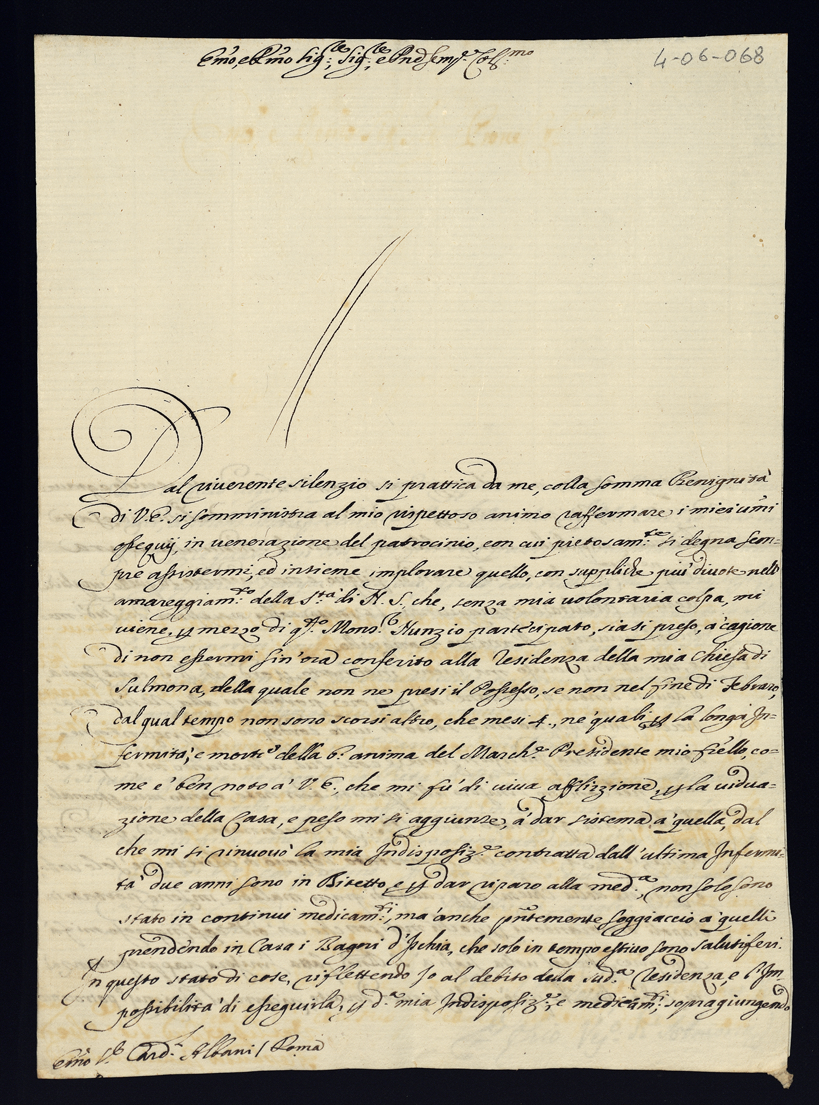 4-06-068
Em̃o, e Rm̃o Sig:re Sig:re, e Pñd Semp:e Col:mo
Dal riverente silenzio si prattica da me, colla somma Benignità
di V. E. si somministra al mio rispettoso animo raffermare i miei umi
ossequij, in venerazione del patrocinio, con cui pietosam:te si degna sem-
pre assistermi, ed insieme implorare quello, con suppliche più divote nell'
amareggiam:to della S:ta di N. S. che, senza mia volontaria colpa, mi
viene, p mezzo di q:to Mons:r Nunzio partecipato, siasi preso, a' cagione
di non essermi sin'ora conferito alla residenza della mia Chiesa di
Sulmona, della quale non ne presi il Possesso, se non nel fine di Febraro,
dal qual tempo non sono scorsi altro, che mesi 4., ne' quali p la longa In-
fermità, e morte della b: anima del March:e Presidente mio fr̃ello, co-
me è ben noto à V. E., che mi fù di viva afflizzione, p la vidua-
zione della Casa, e peso mi si aggiunze, à dar sistema à quella, dal
che mi si rinuovò la mia Indisposiz:e contratta dall'ultima Infermi-
tà due anni sono in Bitetto, e p dar riparo alla med:a, non solo sono
stato in continui medicam:ti, ma' anche pñtemente soggiaccio à quelli
prendendo in Casa i Bagni d'Ischia, che solo in tempo estivo sono salutiferi.
In questo stato di cose, riflettendo Io al debito della sud:a residenza, e l'Im
possibilità di eseguirla, p d:a mia Indisposiz:e, e medicam:ti, sopragiungendo
Em̃o S:r Card:l Albani / Roma